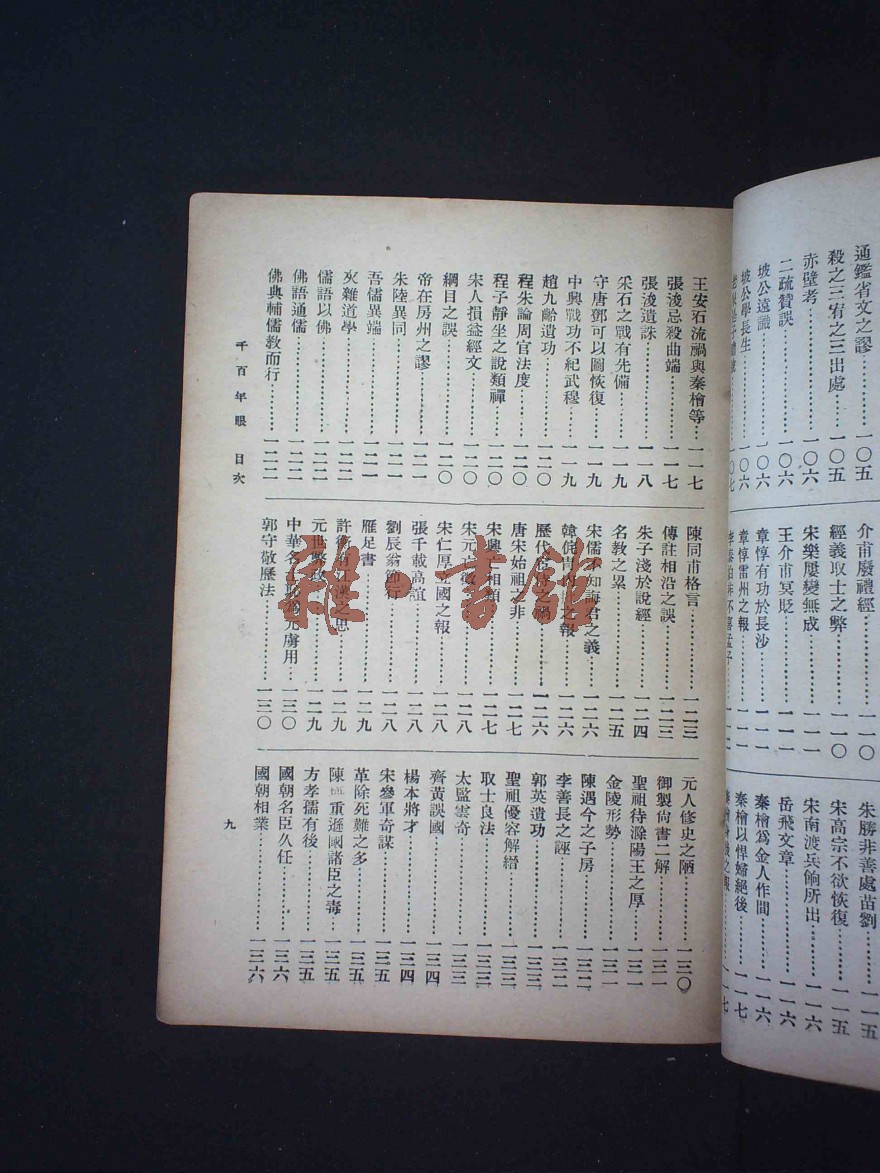 通鑑省文之謬⋯⋯一〇五
殺之三宥之三出處⋯⋯一〇五
赤壁考⋯⋯一〇六
二疏贊誤⋯⋯一〇六
坡公遠識⋯⋯一〇六
坡公學長生⋯⋯一〇六
一〇七
介甫廢禮經⋯⋯一一〇
經義取士之弊⋯⋯一一〇
宋樂屢變無成⋯⋯一一一
王介甫冥貶⋯⋯一一一
章惇有功於長沙⋯⋯一一一
章惇雷州之報⋯⋯一一一
朱勝非善處苗劉⋯⋯一一五
宋高宗不欲恢復⋯⋯一一五
宋南渡兵餉所出⋯⋯一一六
岳飛文章⋯⋯一一六
秦檜爲金人作間⋯⋯一一六
秦檜以悍婦絕後⋯⋯一一七
一一七
王安石流禍與秦檜等⋯⋯一一七
張浚忌殺曲端⋯⋯一一七
張浚遺誅⋯⋯一一八
采石之戰有先備⋯⋯一一九
守唐鄧可以圖恢復⋯⋯一一九
中興戰功不紀武穆⋯⋯一一九
趙九齡遺功⋯⋯一二〇
程朱論周官法度⋯⋯一二〇
程子靜坐之說類禪⋯⋯一二〇
宋人損益經文⋯⋯一二〇
綱目之誤⋯⋯一二〇
帝在房州之謬⋯⋯一二一
朱陸異同⋯⋯一二一
吾儒異端⋯⋯一二一
夾雜道學⋯⋯一二二
儒語以佛⋯⋯一二二
佛語通儒⋯⋯一二二
佛典輔儒教而行⋯⋯一二二
陳同甫格言⋯⋯一二三
傳註相沿之誤⋯⋯一二三
朱子淺於說經⋯⋯一二四
名教之累⋯⋯一二五
宋儒不知誨君之義⋯⋯一二六
韓侂冑之報⋯⋯一二六
歷代之禍⋯⋯一二六
唐宋始祖之非⋯⋯一二七
宋興亡相類⋯⋯一二七
宋元⋯⋯一二八
宋仁厚立國之報⋯⋯一二八
張千載高誼⋯⋯一二八
劉辰翁節行⋯⋯一二八
雁足書⋯⋯一二九
許衡江漢之思⋯⋯一二九
元世弊政⋯⋯一二九
中華名士恥爲元虜用⋯⋯一三〇
郭守敬歷法⋯⋯一三〇
元人修史之陋⋯⋯一三〇
御製尙書二解⋯⋯一三一
聖祖待滁陽王之厚⋯⋯一三一
金陵形勢⋯⋯一三二
陳遇今之子房⋯⋯一三二
李善長之誣⋯⋯一三二
郭英遺功⋯⋯一三三
聖祖優容解縉⋯⋯一三三
取士良法⋯⋯一三三
太監雲奇⋯⋯一三三
齊黃誤國⋯⋯一三四
楊本將才⋯⋯一三四
宋參軍奇謀⋯⋯一三五
革除死難之多⋯⋯一三五
陳重遜國諸臣之毒⋯⋯一三五
方孝孺有後⋯⋯一三五
國朝名臣久任⋯⋯一三六
國朝相業⋯⋯一三六
千百年眼 目次
九
雜·書館